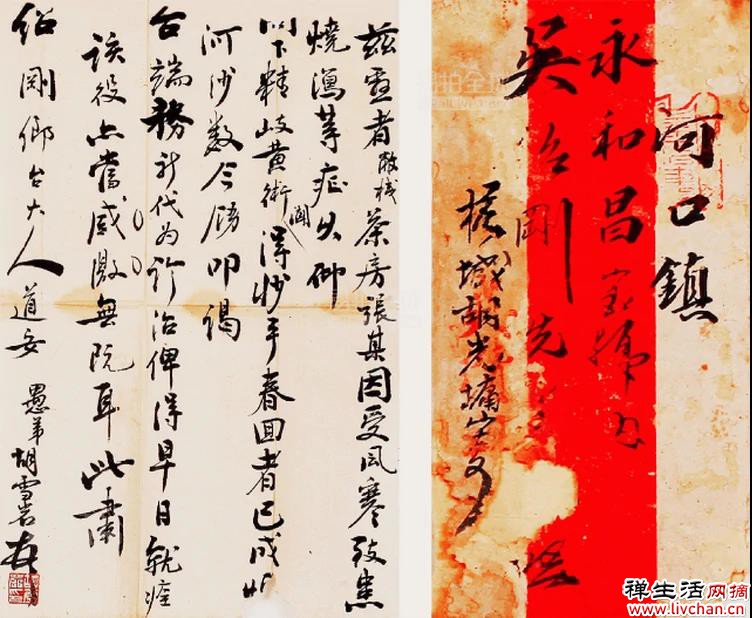 茲啟者敝棧茶房張某因受風寒致患
燒瀉等症久仰
閣下精岐黃術得妙手春回者已成恒
河沙數今叩謁
台端務祈代為診治俾得早日就痊
該役亦當感激無既耳此肅
紹剛鄉台大人道安 愚弟胡雪岩
河口鎮
永和昌寶號內
吳紹剛先生
城胡光墉
禅生活网摘
www.livchan.cn